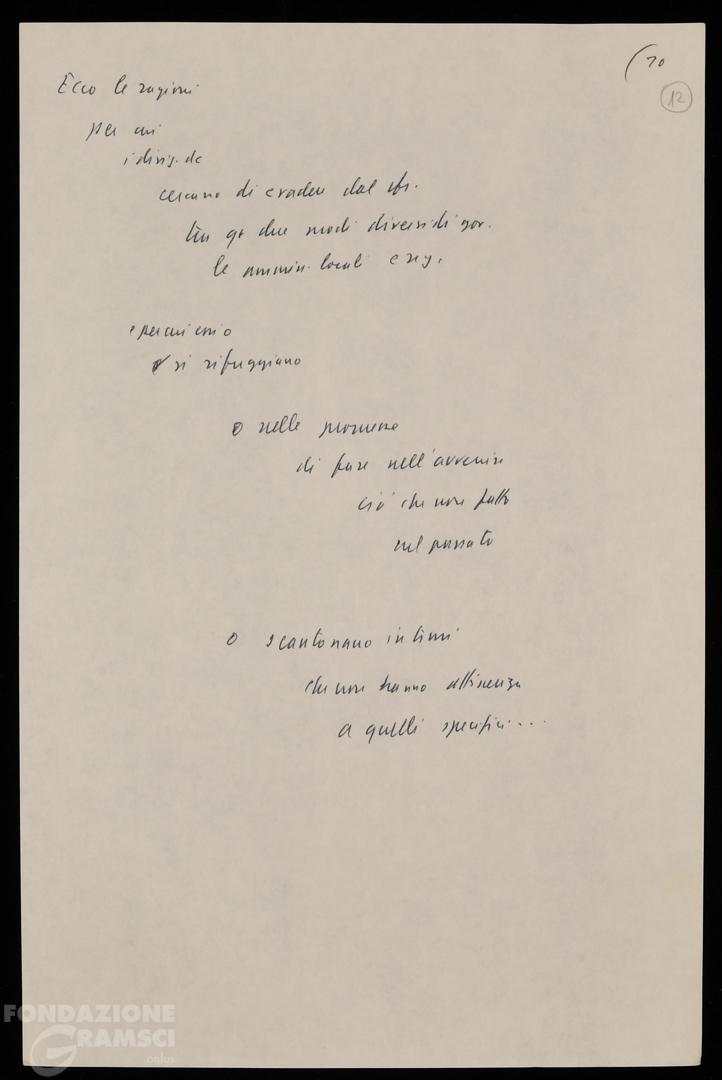 (10
12
Ecco le ragioni
per cui
i dirig. dc
cercano di evadere dal cfr.
tra qs due modi diversi di gov.
le ammin. locali e reg.
e per cui essi o
si rifuggiano
o nelle promesse
di fare nell'avvenire
ciò che non fatto
nel passato
o scantonano in temi
che non hanno attinenza
a quelli specifici...
FONDAZIONE
GRAMSCI
onlus